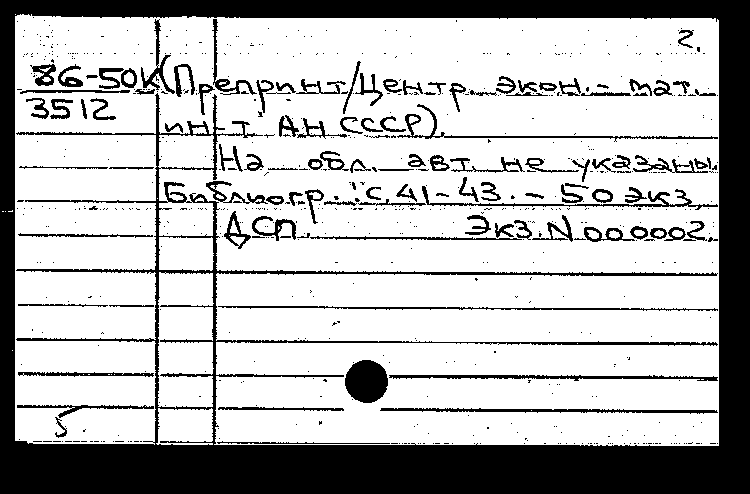 2.
86-50К (Препринт/Центр. экон.- мат.
3512
ин-т АН СССР).
На обл. авт. не указаны.
Библиогр.: с. 41-43. - 50 экз.
ДСП. Экз. N 000002.
5